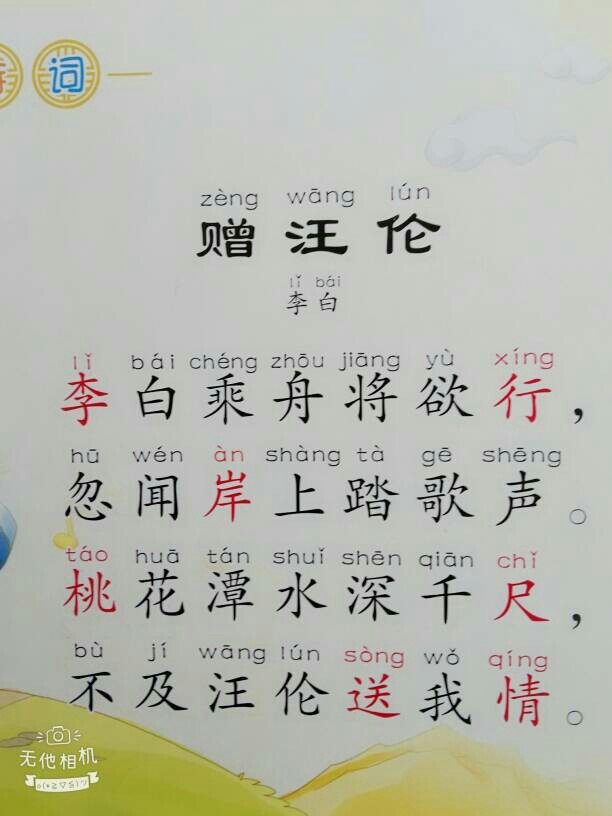 词
zèng wāng lún
赠汪伦
lǐ bái
李白
lǐ bái chéng zhōu jiāng yù xíng
李白乘舟将欲行，
hū wén àn shàng tà gē shēng
忽闻岸上踏歌声。
táo huā tán shuǐ shēn qiān chǐ
桃花潭水深千尺，
bù jí wāng lún sòng wǒ qíng
不及汪伦送我情。
无他相机